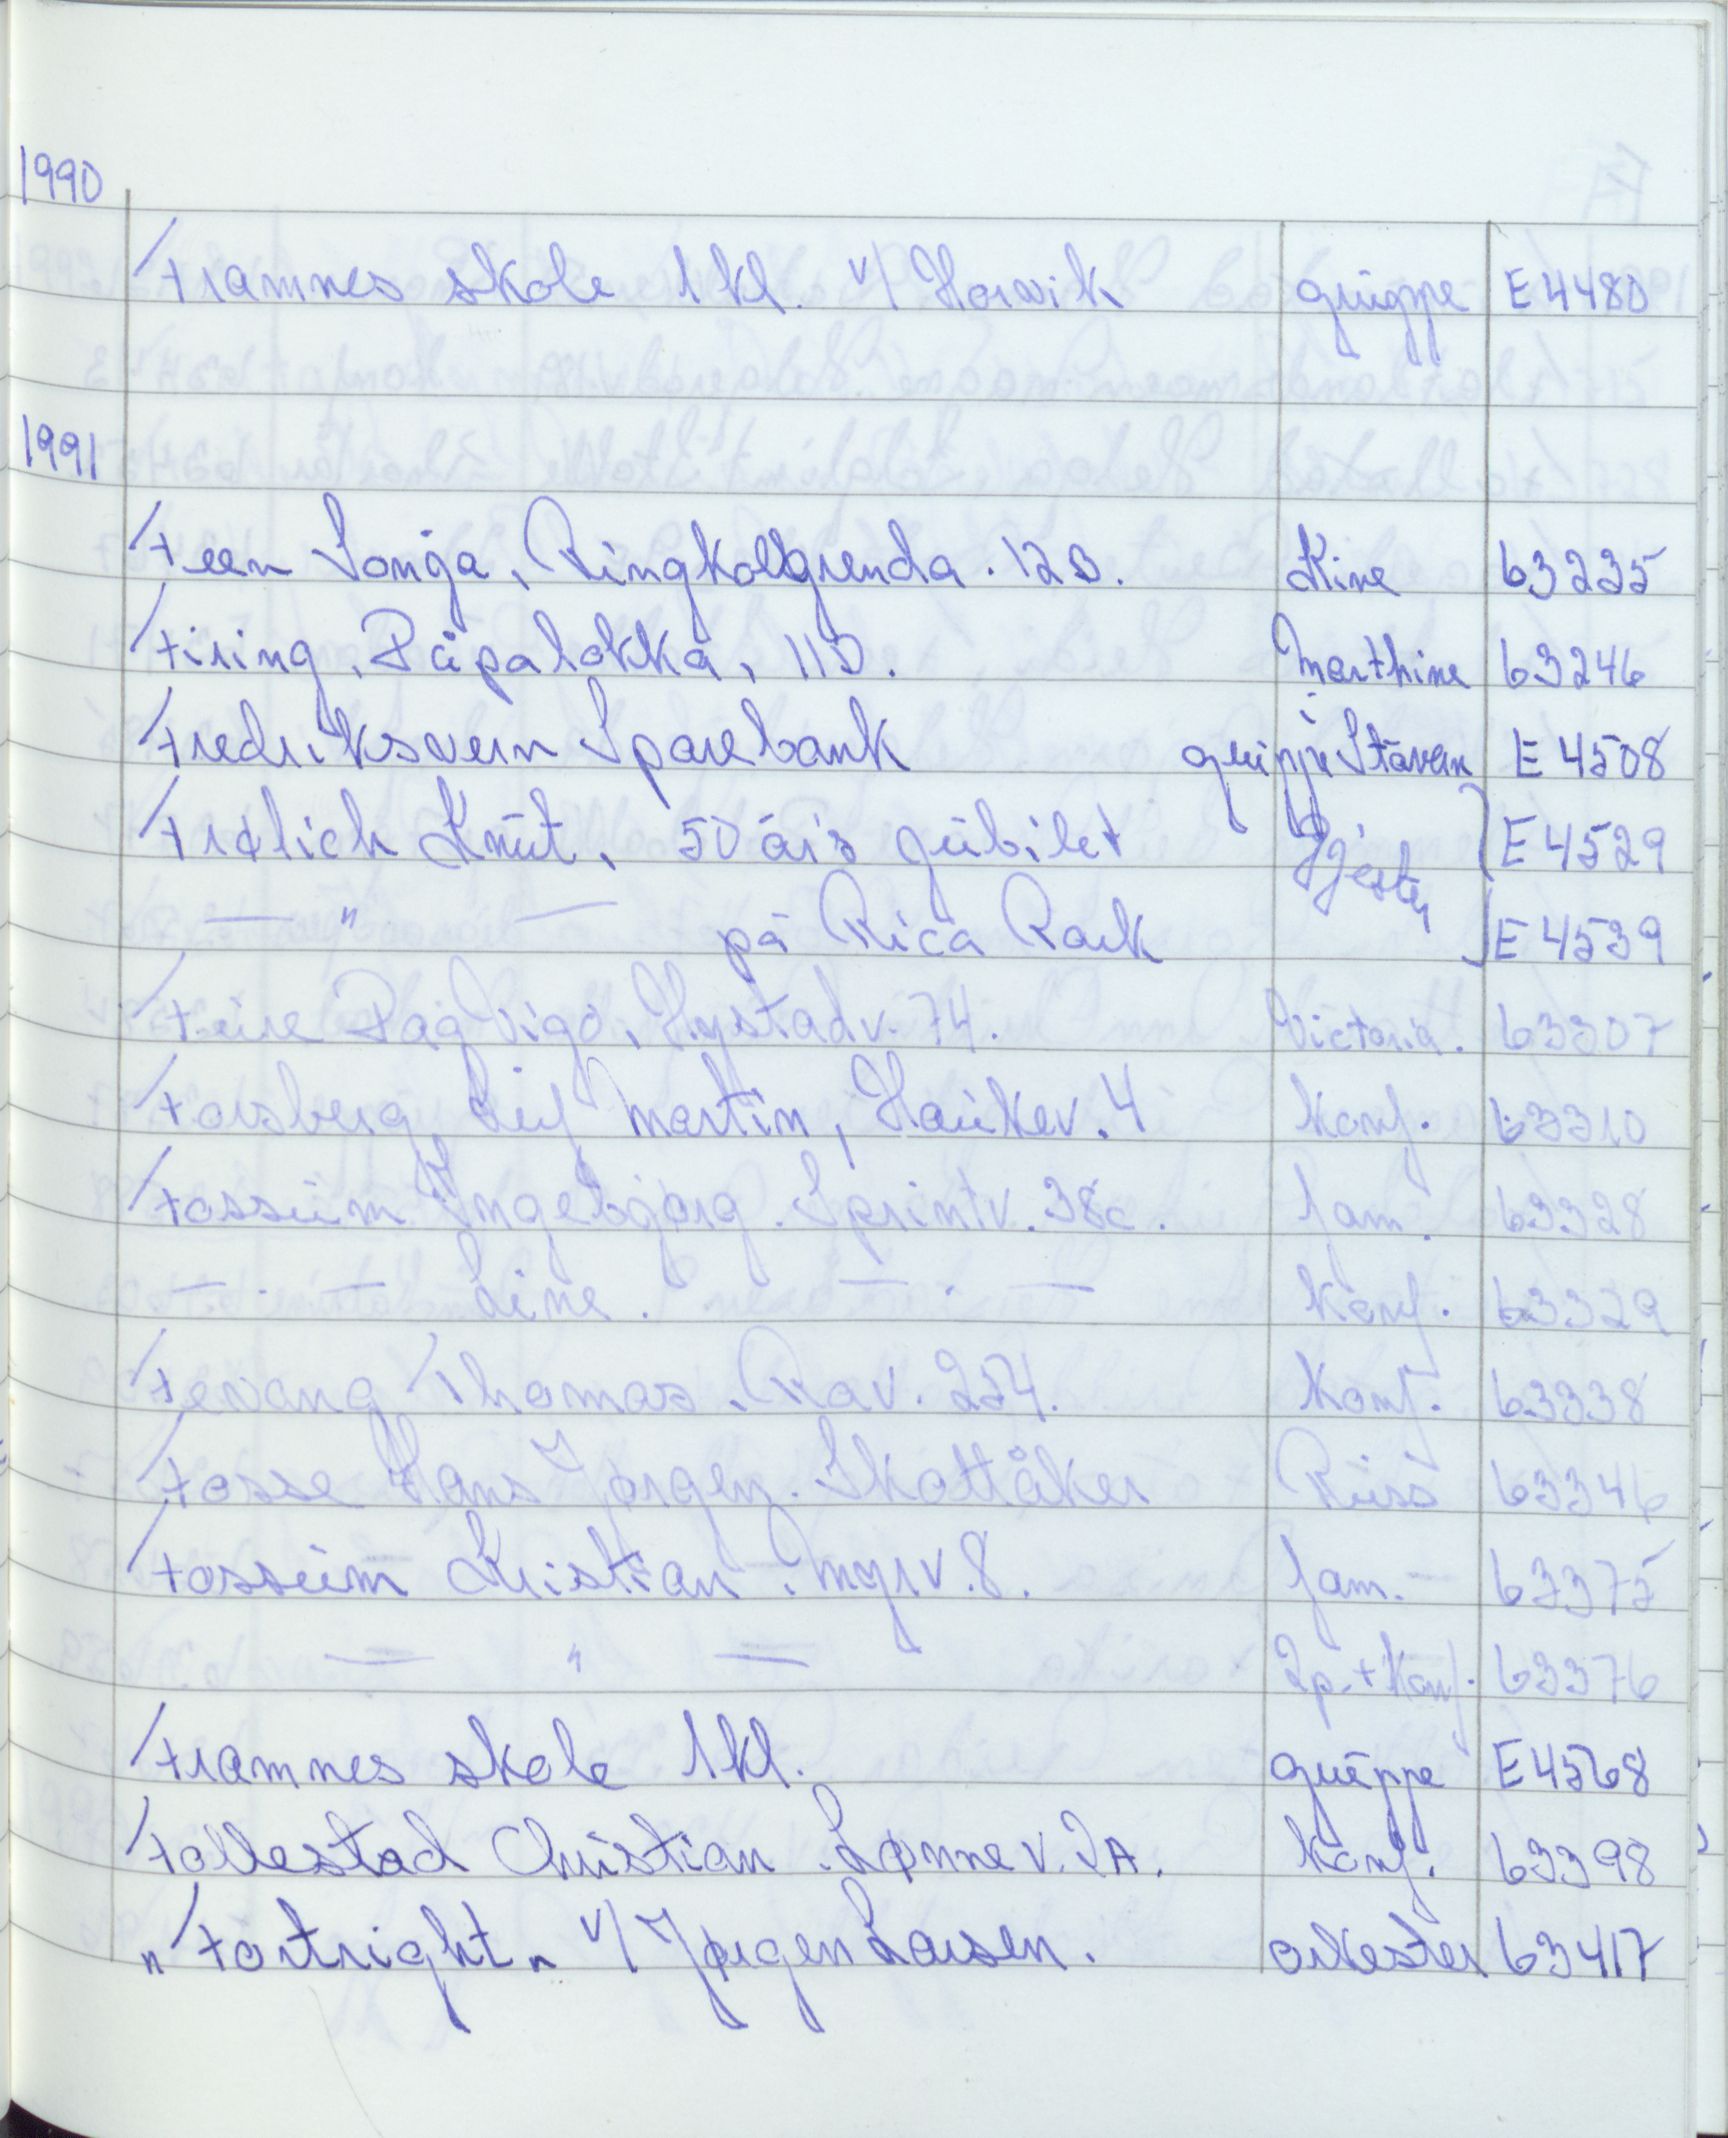 1990
Framnes skole 1 kl. v/ Horvik gruppe E 4480
1991
Feen Sonja, Ringkollgrenda. 12B. Stine 63235
Firing, Papaløkka, 11D. Marthine 63246
Fredriksvern Sparebank gruppe Stavern E 4508
Frølich Knut, 50 års jubilet Gjester E 4529
— " — på Rica Park E 4539
Fure Dag Vigo, Nystadv. 74. Victoria. 63307
Forsberg Leif Martin, Haukev. 4 Konf. 63310
Fossum Ingebjørg. Sprintv. 38c. fam. 63328
— . — Line. — . — Konf. 63329
Fevang Thomas, Rav. 254. Konf. 63338
Fosse Hans Jørgen. Skottåker Russ 63346
Fossum Kristian. Myrv. 8. fam. 63375
— " — 2p. + Konf. 63376
Framnes skole 1 kl. gruppe E 4568
Follestad Christian. Lønnev. 2A. Konf. 63398
"Fortright" v/ Jørgen Larsen. orkester 63417